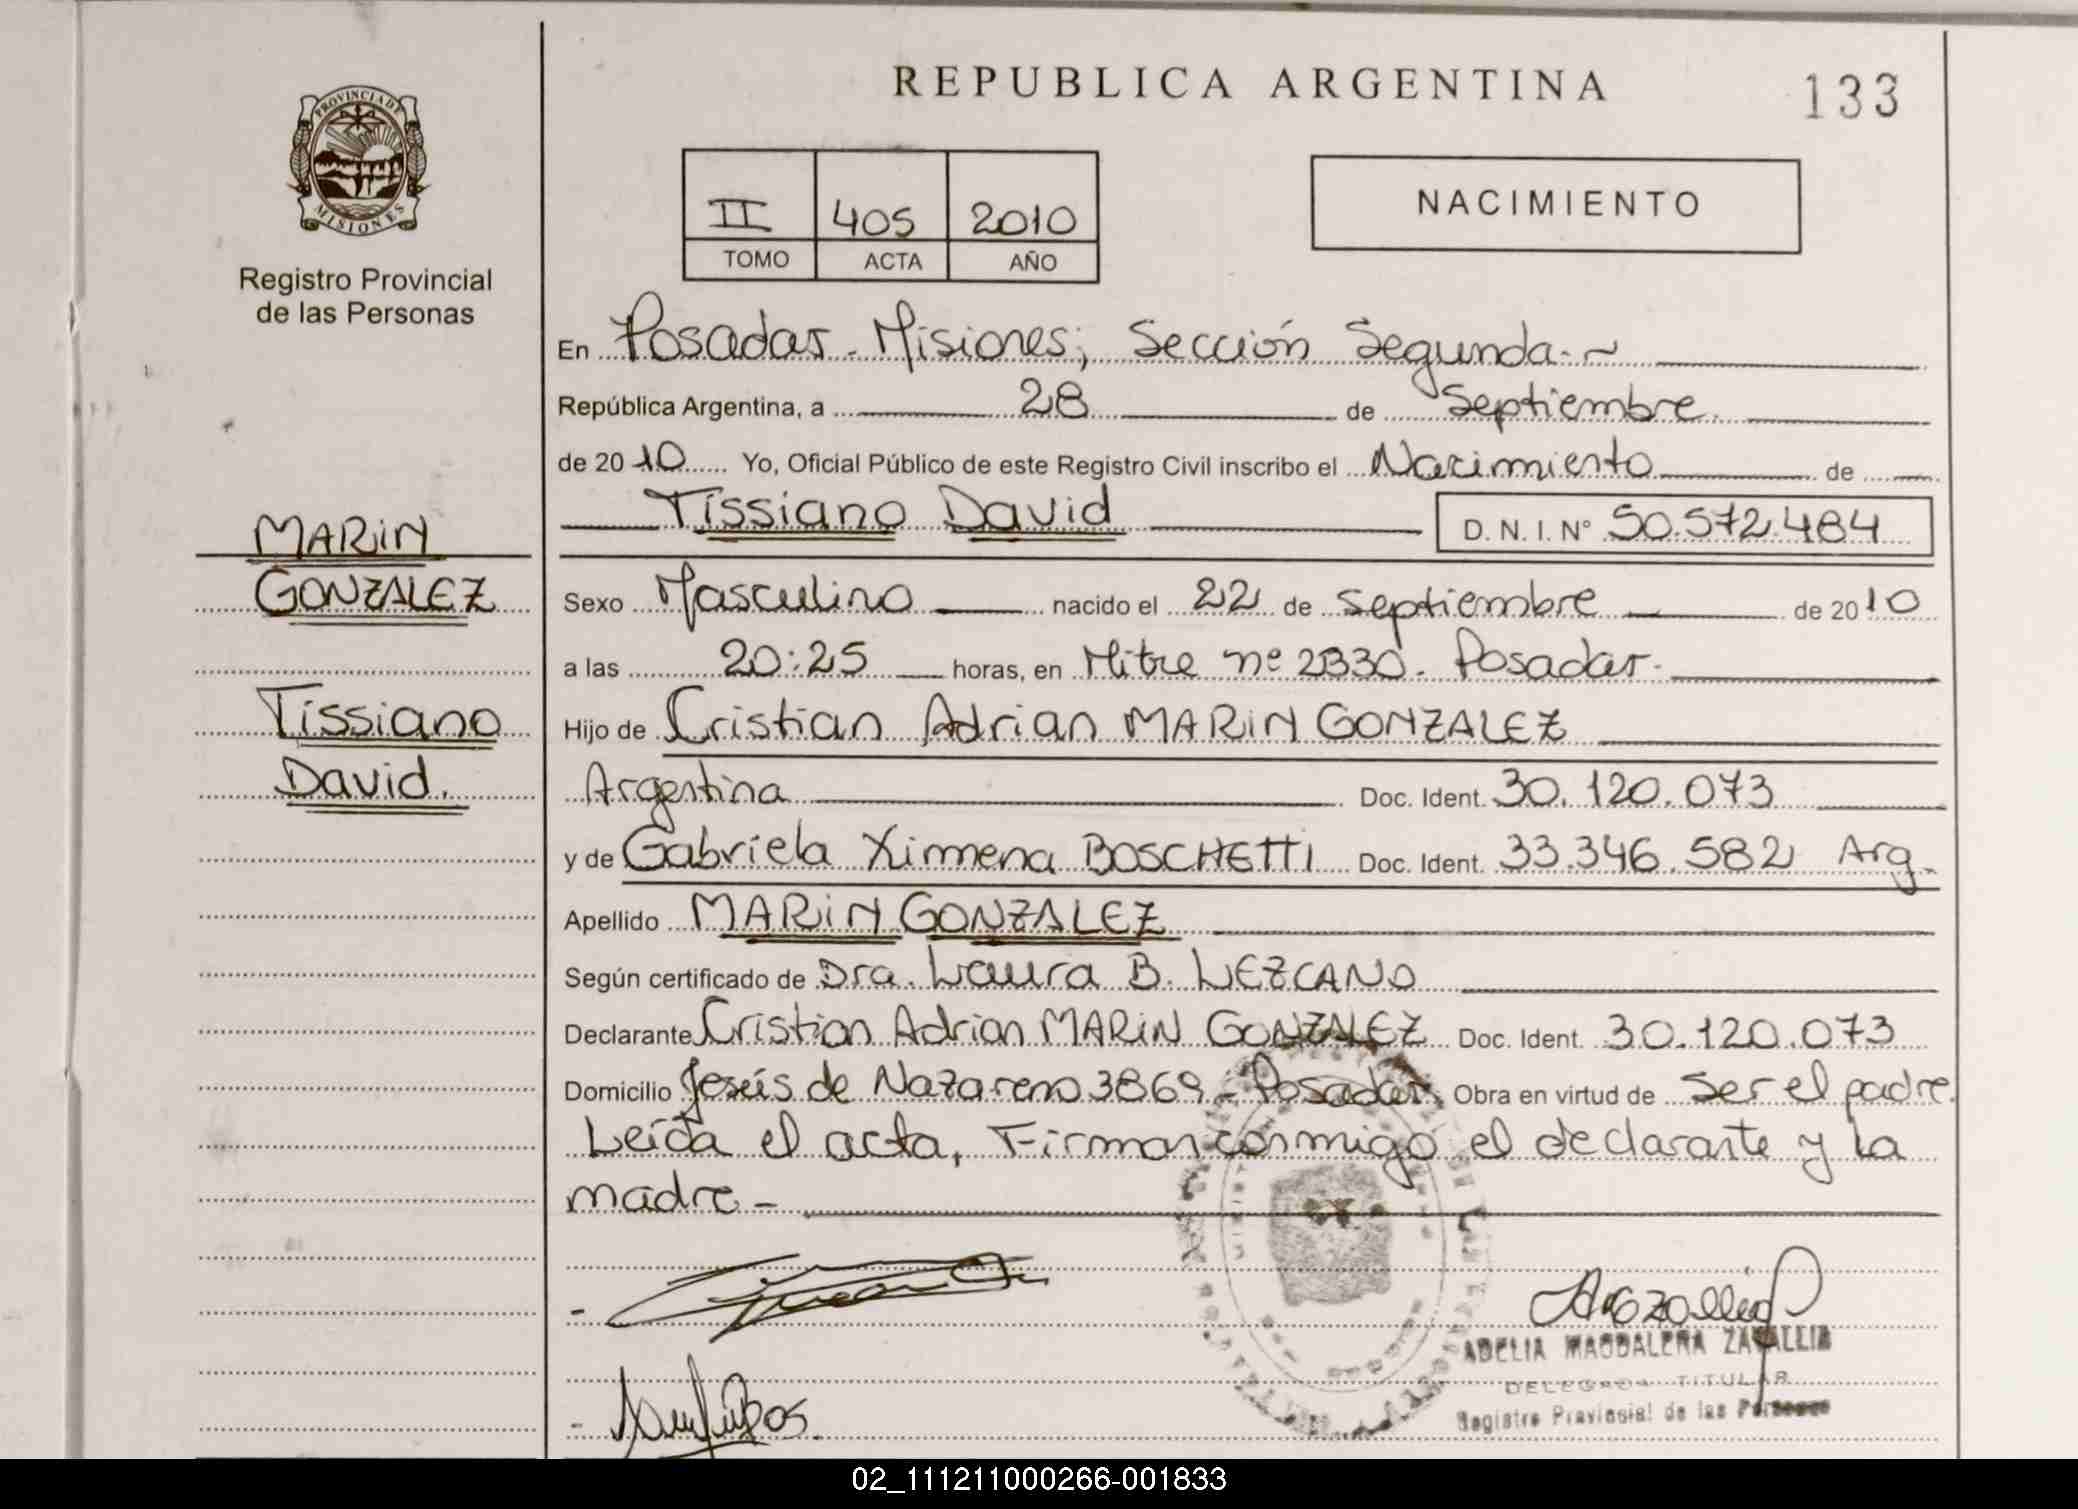 REPUBLICA ARGENTINA
133
PROVINCIA DE
MISIONES
Registro Provincial
de las Personas
II 405 2010
TOMO ACTA AÑO
NACIMIENTO
En Posadas - Misiones; Sección Segunda.- ~
República Argentina, a 28 de Septiembre.
de 2010 Yo, Oficial Público de este Registro Civil inscribo el Nacimiento de
Tissiano David D. N. I. N° 50.572.484
MARiN
GONZALEZ
Tissiano
David.
Sexo Masculino nacido el 22 de septiembre de 2010
a las 20:25 horas, en Mitre nº 2330. Posadas.
Hijo de Cristian Adrian MARiN GONZALEZ
Argentina Doc. Ident. 30.120.073
y de Gabriela Ximena BOSCHETTI Doc. Ident. 33.346.582 Arg.
Apellido MARiN GONZALEZ
Según certificado de Dra. Laura B. LEZCANO
Declarante Cristian Adrian MARiN GONZALEZ Doc. Ident. 30.120.073
Domicilio Jesús de Nazareno 3869 - Posadas. Obra en virtud de Ser el padre.
Leída el acta, Firman conmigo el declarante y la
madre -
ADELIA MAGDALENA ZAVALLIA
DELEGADA TITULAR
Registro Provincial de las Personas
02_111211000266-001833